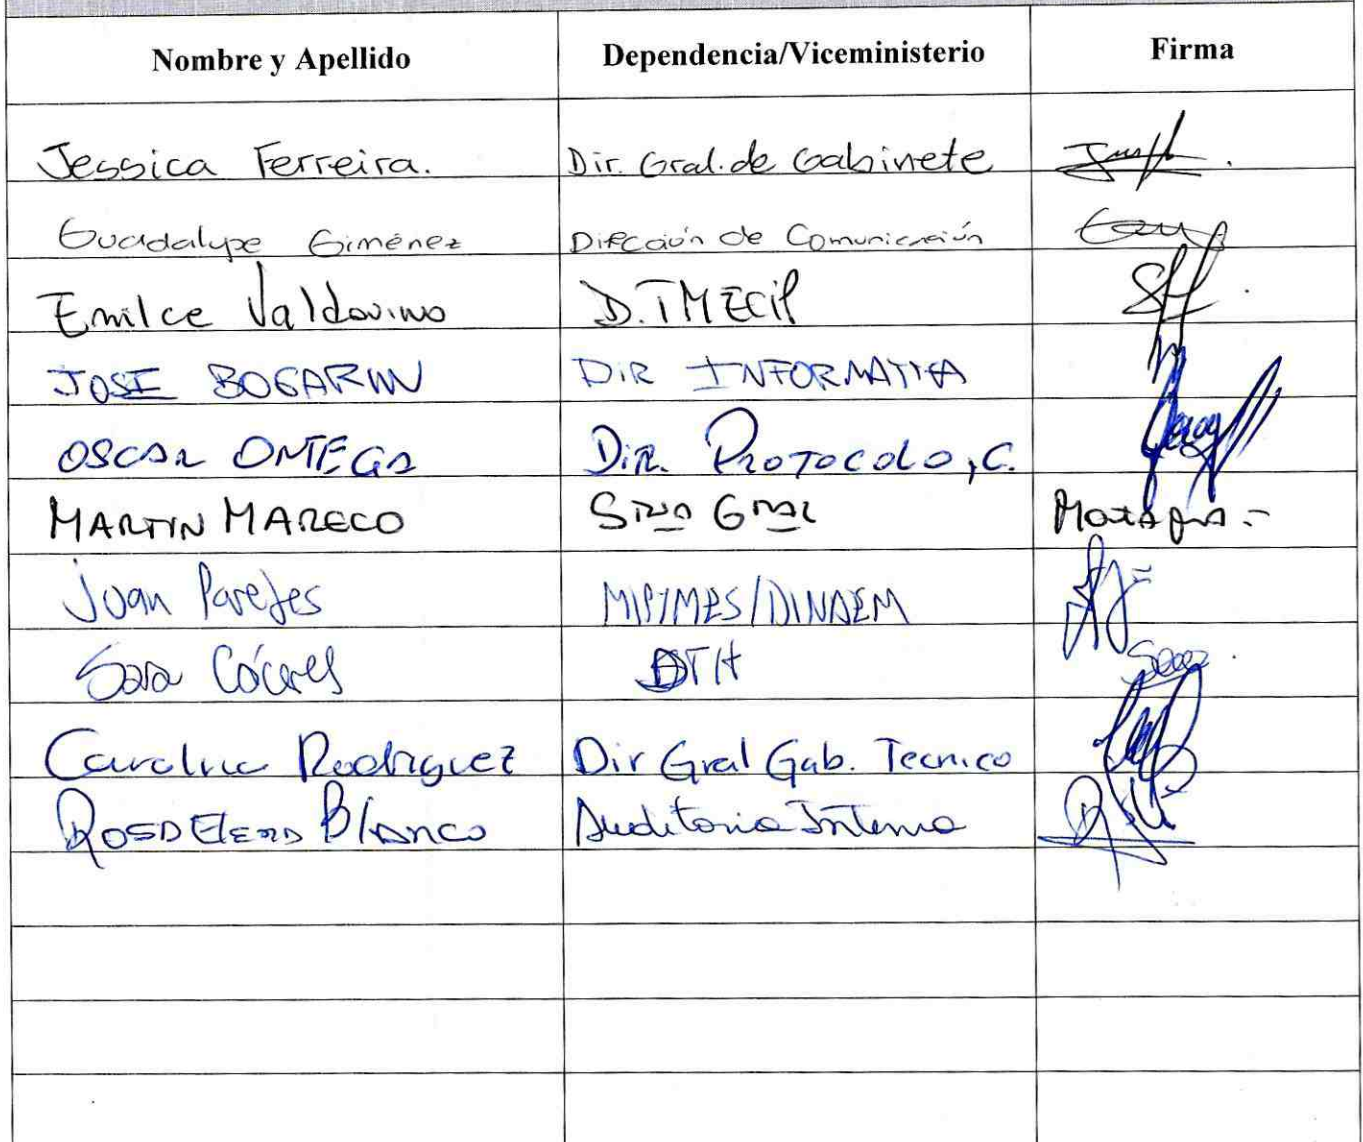 Nombre y Apellido Dependencia/Viceministerio Firma
Jessica Ferreira. Dir. Gral. de Gabinete
Guadalupe Giménez Dirección de Comunicación
Emilce Valdovino D. TMECIP
JOSE BOGARIN DIR INFORMATICA
OSCAR ORTEGA Dir. PROTOCOLO, C.
MARTIN MARECO
Juan Paredes MIPYMES/DINAEM
Sara Cáceres DTH
Carolina Rodriguez Dir Gral Gab. Tecnico
Rosa Elena Blanco Auditoria Interna